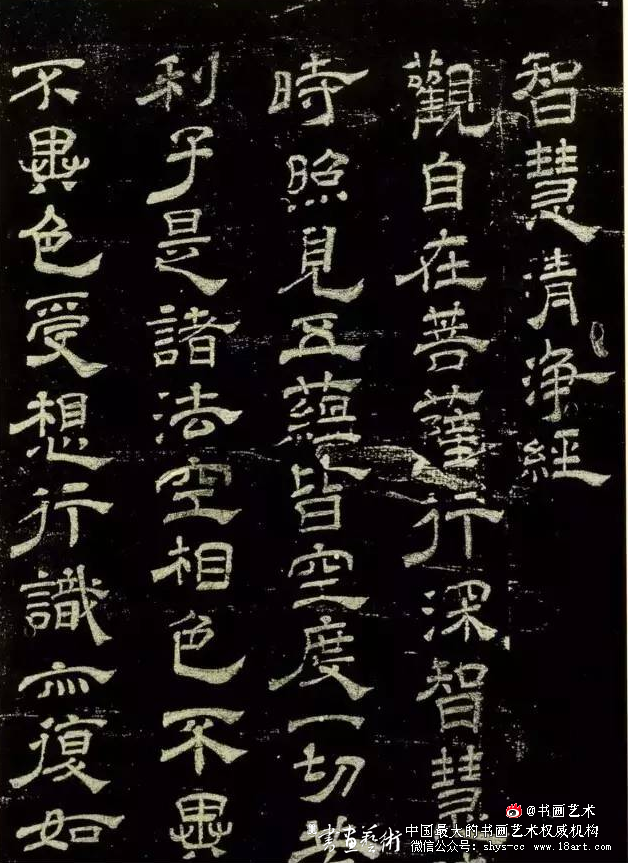 智慧清淨經
觀自在菩薩行深智慧
時照見五蘊皆空度一切
利子是諸法空相色不異
不異色受想行識亦復如
@书画艺术
書畫藝術
中国最大的书画艺术权威机构
微信公众号: shys-cc www.18art.com